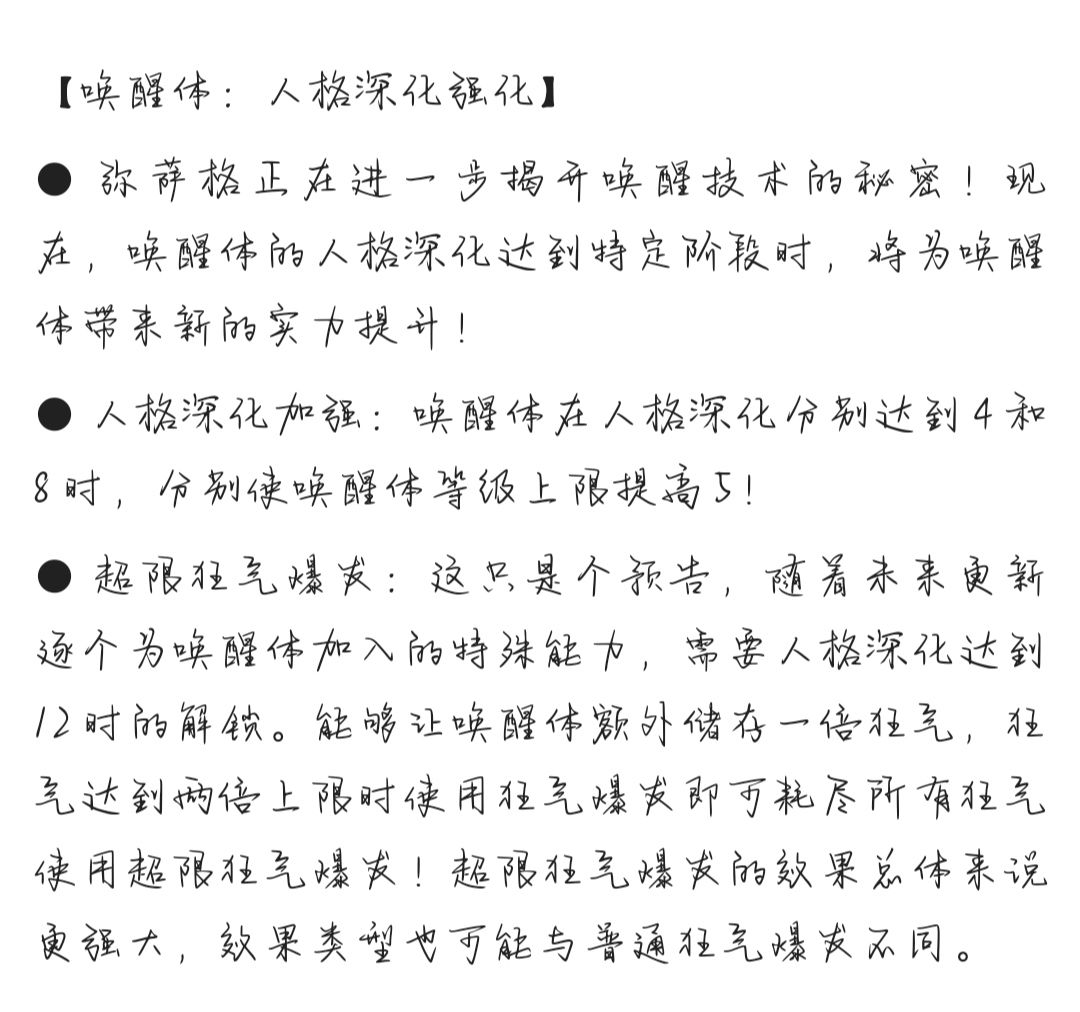 【唤醒体：人格深化强化】
● 弥萨格正在进一步揭开唤醒技术的秘密！现
在，唤醒体的人格深化达到特定阶段时，将为唤醒
体带来新的实力提升！
● 人格深化加强：唤醒体在人格深化分别达到4和
8时，分别使唤醒体等级上限提高5！
● 超限狂气爆发：这只是个预告，随着未来更新
逐个为唤醒体加入的特殊能力，需要人格深化达到
12时的解锁。能够让唤醒体额外储存一倍狂气，狂
气达到两倍上限时使用狂气爆发即可耗尽所有狂气
使用超限狂气爆发！超限狂气爆发的效果总体来说
更强大，效果类型也可能与普通狂气爆发不同。